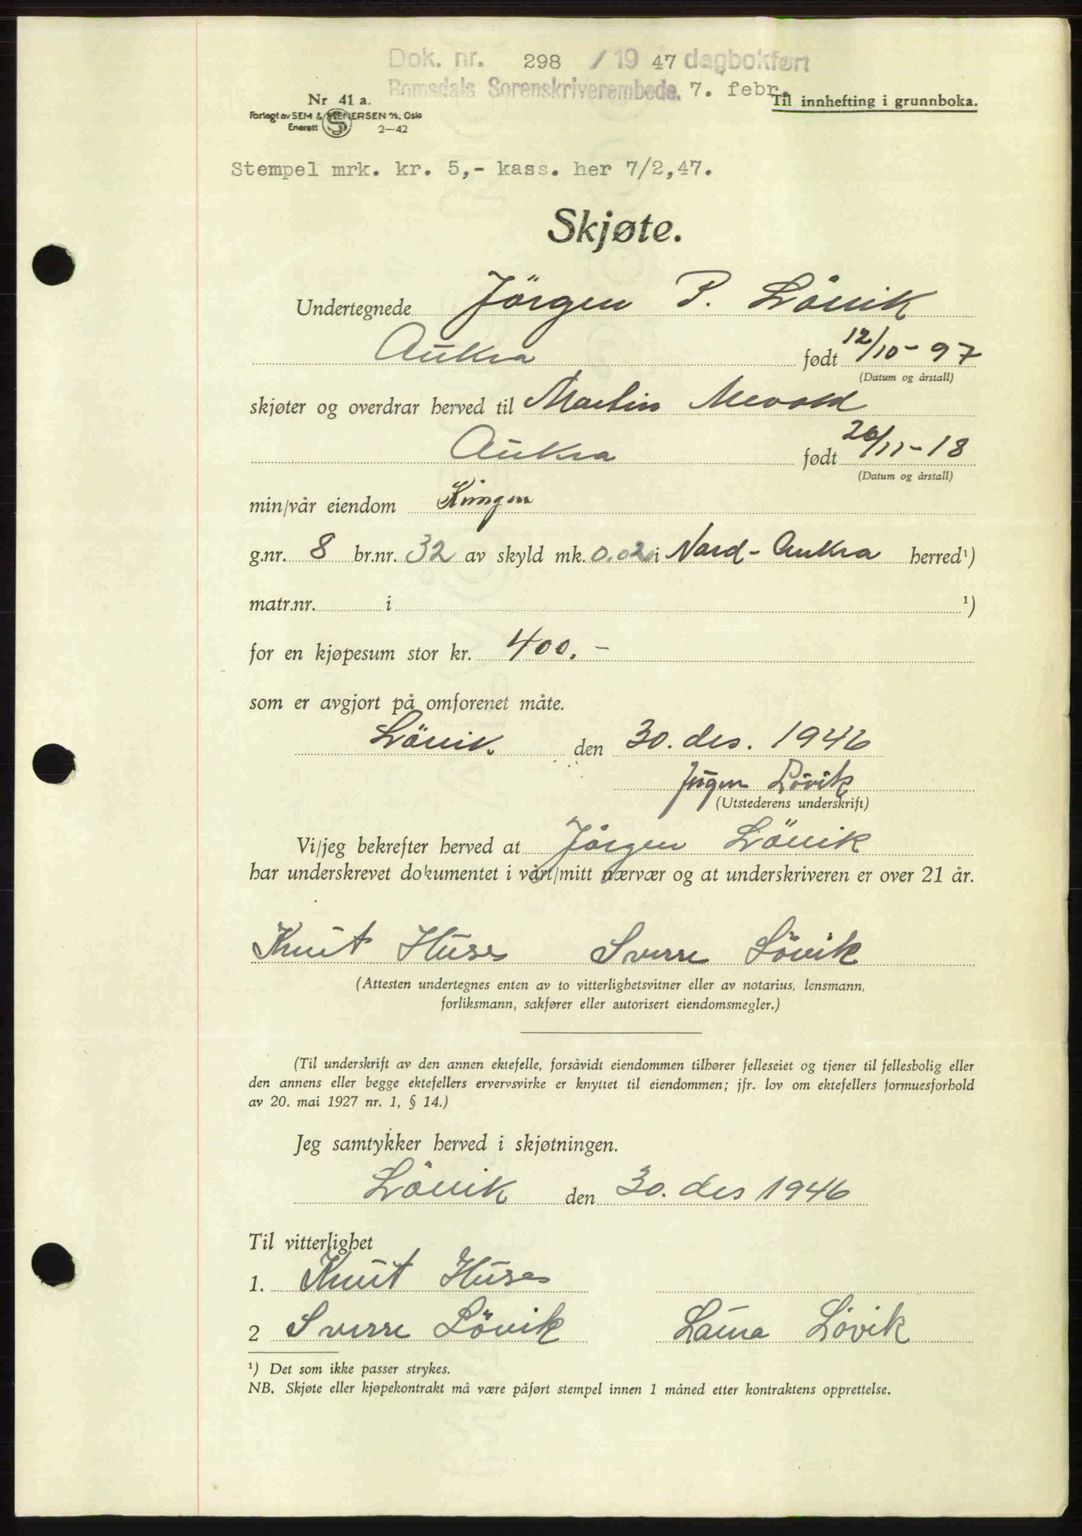 Dok. nr. 298 / 19 47 dagbokført
Romsdals Sorenskriverembede. 7. febr.
Nr 41 a.
Til innhefting i grunnboka.
Forlagt av SEM & STENERSEN A/S, Oslo
Enerett 2-42
Stempel mrk. kr. 5,- kass. her 7/2,47.
Skjøte.
Undertegnede Jörgen P. Lövik
Aukra født 12/10-97
(Datum og årstall)
skjøter og overdrar herved til Martin
Aukra født 26/11-18
(Datum og årstall)
min/vår eiendom
g.nr. 8 br.nr. 32 av skyld mk. 0.02 i Nord-Aukra herred¹)
matr.nr. i ¹)
for en kjøpesum stor kr. 400.-
som er avgjort på omforenet måte.
Lövik. den 30. des. 1946
Jørgen Løvik
(Utstederens underskrift)
Vi/jeg bekrefter herved at Jörgen Lövik
har underskrevet dokumentet i vårt/mitt nærvær og at underskriveren er over 21 år.
Knut Huses Sverre Lövik
(Attesten undertegnes enten av to vitterlighetsvitner eller av notarius, lensmann,
forliksmann, sakfører eller autorisert eiendomsmegler.)
(Til underskrift av den annen ektefelle, forsåvidt eiendommen tilhører felleseiet og tjener til fellesbolig eller
den annens eller begge ektefellers ervervsvirke er knyttet til eiendommen; jfr. lov om ektefellers formuesforhold
av 20. mai 1927 nr. 1, § 14.)
Jeg samtykker herved i skjøtningen.
Lövik den 30. des 1946
Til vitterlighet
1. Knut Huses
2 Sverre Lövik Laura Lövik
¹) Det som ikke passer strykes.
NB. Skjøte eller kjøpekontrakt må være påført stempel innen 1 måned etter kontraktens opprettelse.